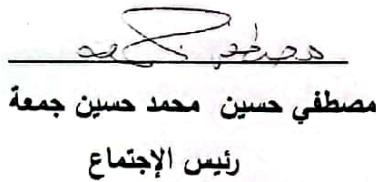 مصطفي حسين محمد حسين جمعة
رئيس الإجتماع